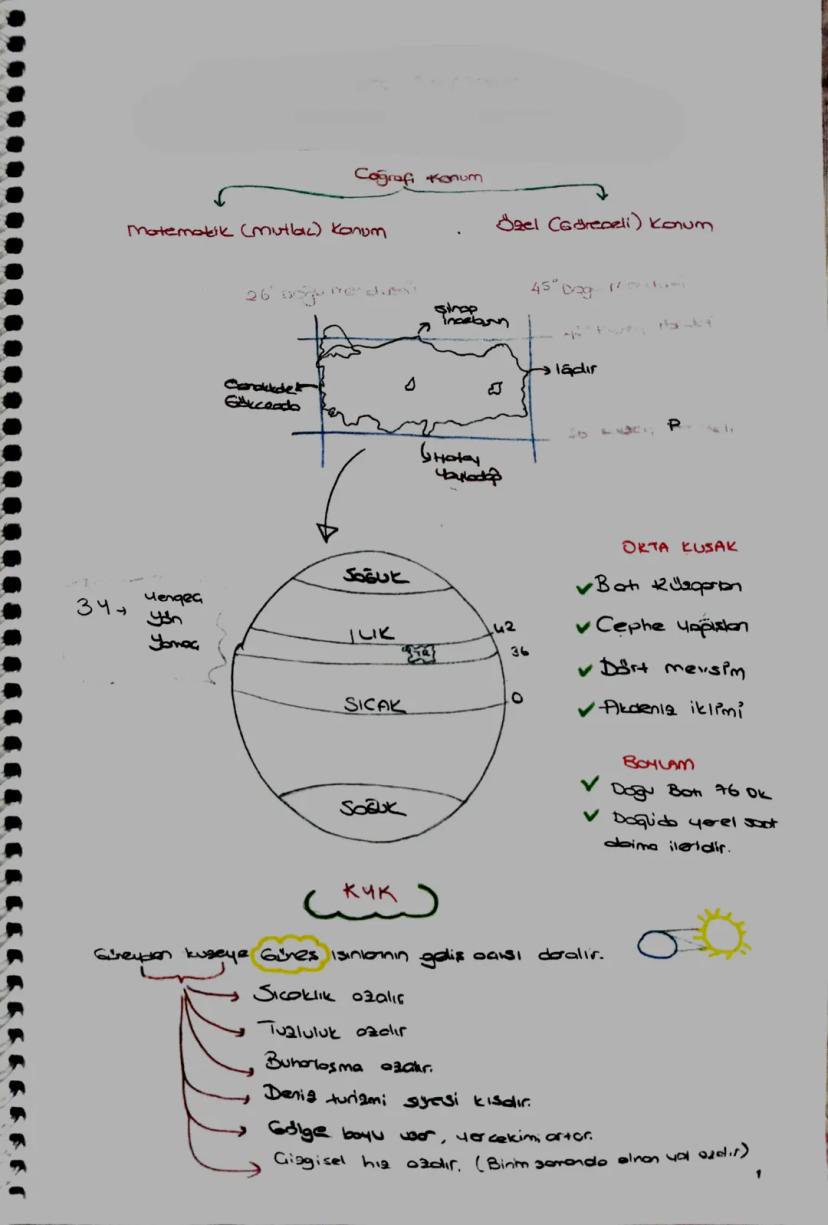 Coğrafi Konum
Matematik (Mutlak) Konum
Özel (Göreceli) Konum
26° Doğu Meridyeni
45° Doğu
Sinop
İnceburun
Iğdır
Çanakkale
Gökçeada
P
Hatay
SOĞUK
3Y → Yengeç
Yön
Yamaç
ILIK
42
36
TR
SICAK
0
SOĞUK
ORTA KUŞAK
Batı Rüzgarları
Cephe Yağışları
Dört mevsim
Akdeniz iklimi
BOYLAM
Doğu Batı 76 DK
Doğuda yerel saat
daima ileridir.
KYK
Güneyden kuzeye Güneş ışınlarının geliş açısı daralır.
Sıcaklık azalır
Tuzluluk azalır
Buharlaşma azalır.
Deniz turizmi süresi kısalır.
Gölge boyu uzar, yerçekimi artar.
Çizgisel hız azalır. (Birim zamanda alınan yol azalır)
1